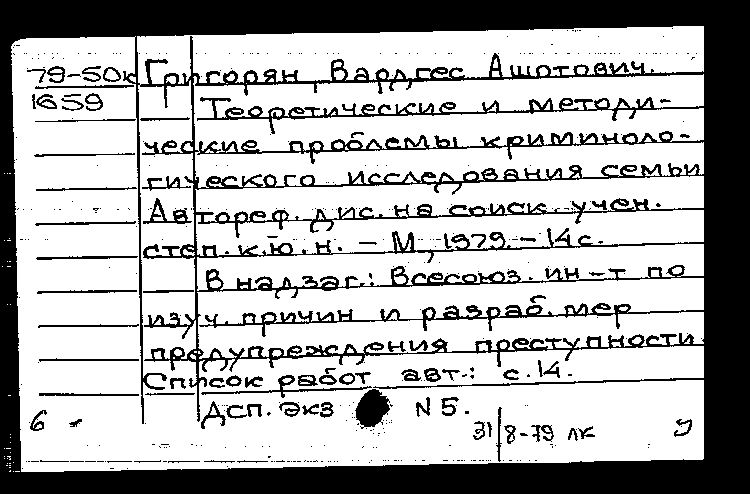 79-50к Григорян, Вардгес Ашотович.
1659 Теоретические и методи-
ческие проблемы криминоло-
гического исследования семьи
Автореф. дис. на соиск. учен.
степ. к.ю.н. – М., 1979. – 14 с.
В надзаг.: Всесоюз. ин-т по
изуч. причин и разраб. мер
предупреждения преступности.
Список работ авт.: с. 14.
Дсп. Экз N 5.
6 31/8-79 лк У